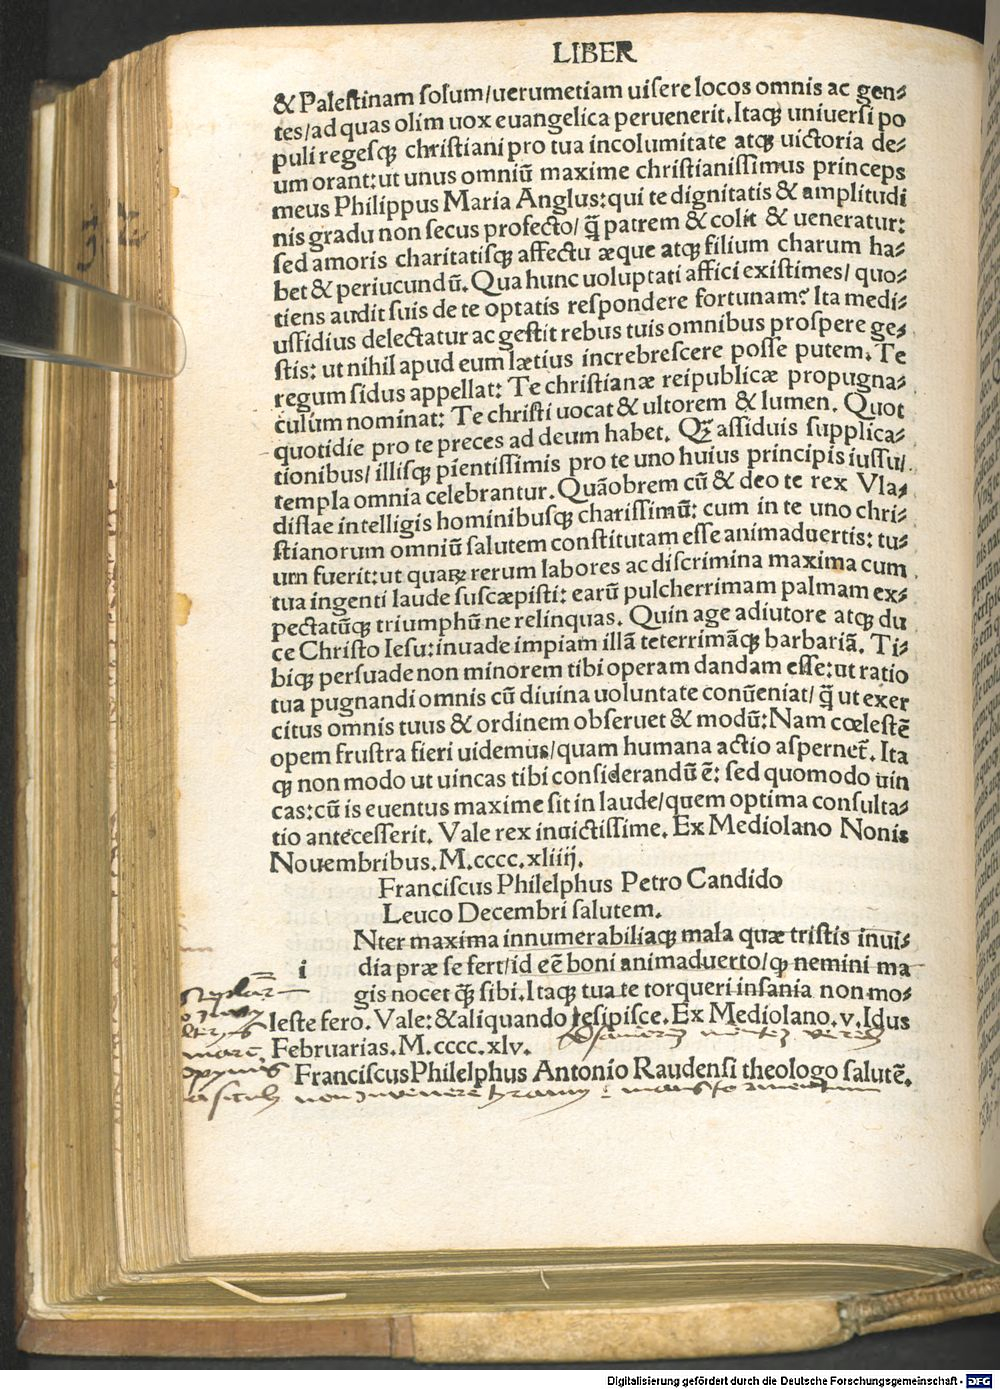 LIBER
& Palestinam solum/uerumetiam uisere locos omnis ac gen⸗
tes/ad quas olim uox euangelica peruenerit. Itaqꝫ uniuersi po
puli regesqꝫ christiani pro tua incolumitate atqꝫ uictoria de⸗
um orant: ut unus omniū maxime christianissimus princeps
meus Philippus Maria Anglus: qui te dignitatis & amplitudi
nis gradu non secus profecto/ q̃ patrem & colit & ueneratur:
sed amoris charitatisqꝫ affectu æque atqꝫ filium charum ha⸗
bet & periucundū. Qua hunc uoluptati affici existimes/ quo⸗
tiens audit suis de te optatis respondere fortunam? Ita medi⸗
ussidius delectatur ac gestit rebus tuis omnibus prospere ge⸗
stis: ut nihil apud eum lætius increbrescere posse putem. Te
regum sidus appellat: Te christianæ reipublicæ propugna⸗
culum nominat: Te christi uocat & ultorem & lumen. Quot
quotidie pro te preces ad deum habet. Qꝫ assiduis supplica⸗
tionibus/ illisqꝫ pientissimis pro te uno huius principis iussu/
templa omnia celebrantur. Quãobrem cū & deo te rex Vla⸗
dislae intelligis hominibusqꝫ charissimū: cum in te uno chri⸗
stianorum omniū salutem constitutam esse animaduertis: tu⸗
um fuerit: ut quaꝝ rerum labores ac discrimina maxima cum
tua ingenti laude suscæpisti: earū pulcherrimam palmam ex⸗
pectatūqꝫ triumphū ne relinquas. Quin age adiutore atqꝫ du
ce Christo Iesu: inuade impiam illã teterrimãqꝫ barbariã. Ti⸗
biqꝫ persuade non minorem tibi operam dandam esse: ut ratio
tua pugnandi omnis cū diuina uoluntate conueniat/ q̃ ut exer
citus omnis tuus & ordinem obseruet & modū: Nam cœlestē
opem frustra fieri uidemus/quam humana actio aspernet̃. Ita
qꝫ non modo ut uincas tibi considerandū ē: sed quomodo uin
cas: cū is euentus maxime sit in laude/quem optima consulta⸗
tio antecesserit. Vale rex inuictissime. Ex Mediolano Nonis
Nouembribus. M.cccc.xliiij.
Franciscus Philelphus Petro Candido
Leuco Decembri salutem.
Nter maxima innumerabiliaqꝫ mala quæ tristis inui⸗
i dia præ se fert/id eē boni animaduerto/qꝫ nemini ma
gis nocet q̃ꝫ sibi. Itaqꝫ tua te torqueri insania non mo⸗
leste fero. Vale: & aliquando resipisce. Ex Mediolano. v. Idus
Februarias. M.cccc.xlv.
Franciscus Philelphus Antonio Raudensi theologo salutē.
non invenere tyranni
Digitalisierung gefördert durch die Deutsche Forschungsgemeinschaft - DFG